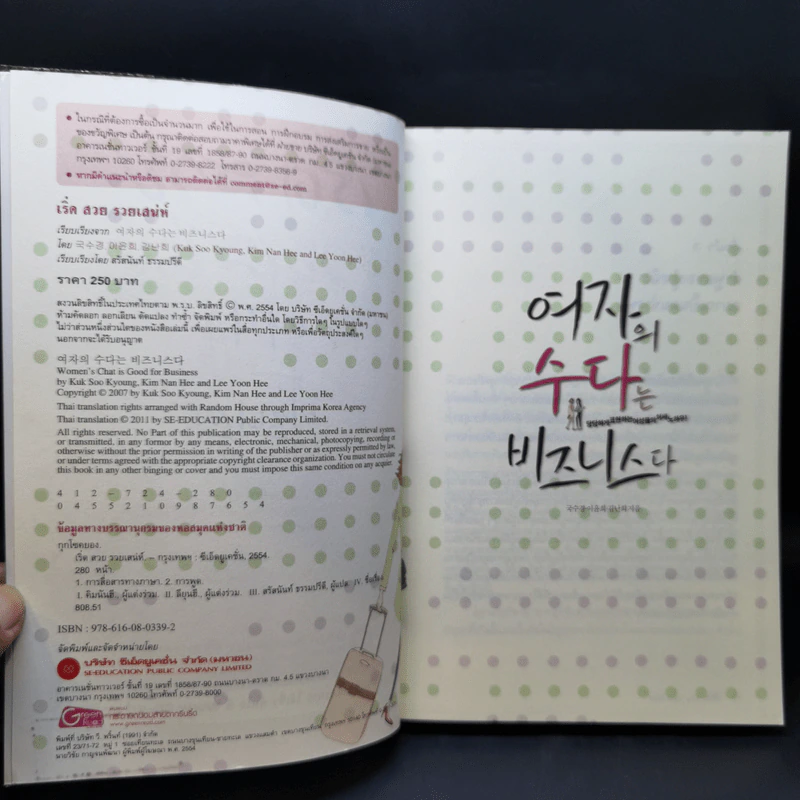 • ในกรณีที่ต้องการซื้อเป็นจำนวนมาก เพื่อใช้ในการสอน การฝึกอบรม การส่งเสริมการขาย หรือเป็น
ของขวัญพิเศษ เป็นต้น กรุณาติดต่อสอบถามราคาพิเศษได้ที่ ฝ่ายขาย บริษัท ซีเอ็ดยูเคชั่น จำกัด (มหาชน)
อาคารเนชั่นทาวเวอร์ ชั้นที่ 19 เลขที่ 1858/87-90 ถนนบางนา-ตราด กม. 4.5 แขวงบางนา
กรุงเทพฯ 10260 โทรศัพท์ 0-2739-8222 โทรสาร 0-2739-8356-9
• หากมีคำแนะนำหรือติชม สามารถติดต่อได้ที่ comment@se-ed.com
เริ่ด สวย รวยเสน่ห์
เรียบเรียงจาก 여자의 수다는 비즈니스다
โดย 국수경 이윤희 김난희 (Kuk Soo Kyoung, Kim Nan Hee and Lee Yoon Hee)
เรียบเรียงโดย สรัสนันท์ ธรรมปรีดี
ราคา 250 บาท
สงวนลิขสิทธิ์ในประเทศไทยตาม พ.ร.บ. ลิขสิทธิ์ © พ.ศ. 2554 โดย บริษัท ซีเอ็ดยูเคชั่น จำกัด (มหาชน)
ห้ามคัดลอก ลอกเลียน ดัดแปลง ทำซ้ำ จัดพิมพ์ หรือกระทำอื่นใด โดยวิธีการใดๆ ในรูปแบบใดๆ
ไม่ว่าส่วนหนึ่งส่วนใดของหนังสือเล่มนี้ เพื่อเผยแพร่ในสื่อทุกประเภท หรือเพื่อวัตถุประสงค์ใดๆ
นอกจากจะได้รับอนุญาต
여자의 수다는 비즈니스다
Women's Chat is Good for Business
by Kuk Soo Kyoung, Kim Nan Hee and Lee Yoon Hee
Copyright © 2007 by Kuk Soo Kyoung, Kim Nan Hee and Lee Yoon Hee
Thai translation rights arranged with Random House through Imprima Korea Agency
Thai translation © 2011 by SE-EDUCATION Public Company Limited.
All rights reserved. No Part of this publication may be reproduced, stored in a retrieval system,
or transmitted, in any former by any means, electronic, mechanical, photocopying, recording or
otherwise without the prior permission in writing of the publisher or as expressly permitted by law,
or under terms agreed with the appropriate copyright clearance organization. You must not circulate
this book in any other binging or cover and you must impose this same condition on any acquirer.
4 1 2 – 7 2 4 – 2 8 0
0 4 5 5 2 1 0 9 8 7 6 5 4
ข้อมูลทางบรรณานุกรมของหอสมุดแห่งชาติ
กุกโซคยอง.
เริ่ด สวย รวยเสน่ห์. – กรุงเทพฯ : ซีเอ็ดยูเคชั่น, 2554.
280 หน้า
1. การสื่อสารทางภาษา. 2. การพูด.
I. คิมนันฮี., ผู้แต่งร่วม. II. ลียุนฮี., ผู้แต่งร่วม. III. สรัสนันท์ ธรรมปรีดี, ผู้แปล. IV. ชื่อเรื่อง.
808.51
ISBN : 978-616-08-0339-2
จัดพิมพ์และจัดจำหน่ายโดย
บริษัท ซีเอ็ดยูเคชั่น จำกัด (มหาชน)
SE-EDUCATION PUBLIC COMPANY LIMITED
อาคารเนชั่นทาวเวอร์ ชั้นที่ 19 เลขที่ 1858/87-90 ถนนบางนา-ตราด กม. 4.5 แขวงบางนา
เขตบางนา กรุงเทพฯ 10260 โทรศัพท์ 0-2739-8000
Green
www.green-aid.com
พิมพ์ที่ บริษัท วี. พริ้นท์ (1991) จำกัด
เลขที่ 23/71-72 หมู่ 1 ซอยเทียนทะเล ถนนบางขุนเทียน-ชายทะเล แขวงแสมดำ เขตบางขุนเทียน กรุงเทพฯ
พ.ศ. 2554
여자의
수다는
비즈니스다
국수경·이윤희·김난희 지음